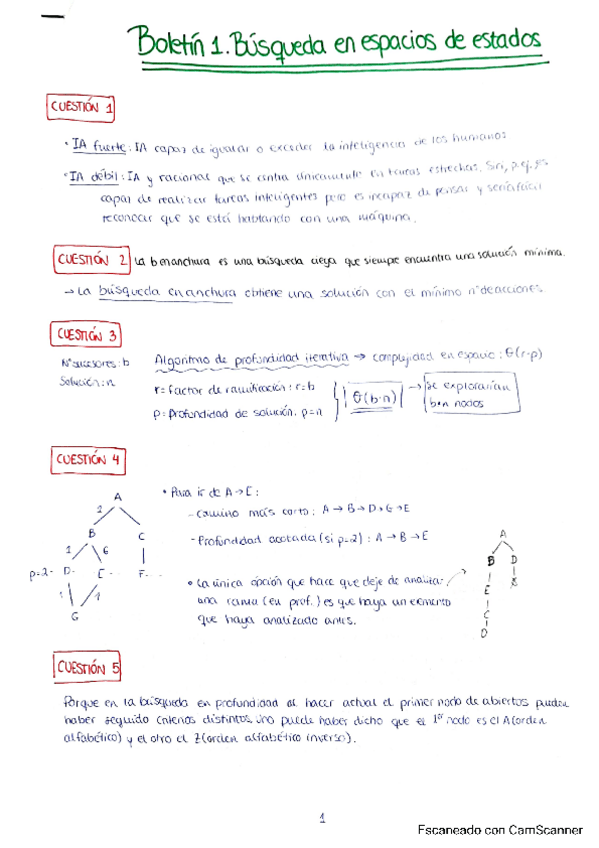 Boletín 1. Búsqueda en espacios de estados
CUESTIÓN 1
• IA fuerte: IA capaz de igualar o exceder la inteligencia de los humanos
• IA débil: IA y racional que se centra únicamente en tareas estrechas. Siri, p.ej, es
capaz de realizar tareas inteligentes pero es incapaz de pensar y sería fácil
reconocer que se está hablando con una máquina.
CUESTIÓN 2 La b en anchura es una búsqueda ciega que siempre encuentra una solución mínima.
→ La búsqueda en anchura obtiene una solución con el mínimo nº de acciones.
CUESTIÓN 3
Nº sucesores: b Algoritmo de profundidad iterativa → complejidad en espacio: Θ(r·p)
Solución: n r = factor de ramificación: r=b
p = Profundidad de solución. p=n
Θ(b·n) → Se explorarían
b·n nodos
CUESTIÓN 4
• Para ir de A→E:
- camino más corto: A → B → D → G → E
- Profundidad acotada (si p=2): A → B → E
• La única opción que hace que deje de analizar
una rama (en prof.) es que haya un elemento
que haya analizado antes.
A
2
B C
1 6
p=2- D- E- F-
1 1
G
A
B D
E
C
D
CUESTIÓN 5
Porque en la búsqueda en profundidad al hacer actual el primer nodo de abiertos pueden
haber seguido criterios distintos. Uno puede haber dicho que el 1er nodo es el A (orden
alfabético) y el otro el Z (orden alfabético inverso).
1
Escaneado con CamScanner